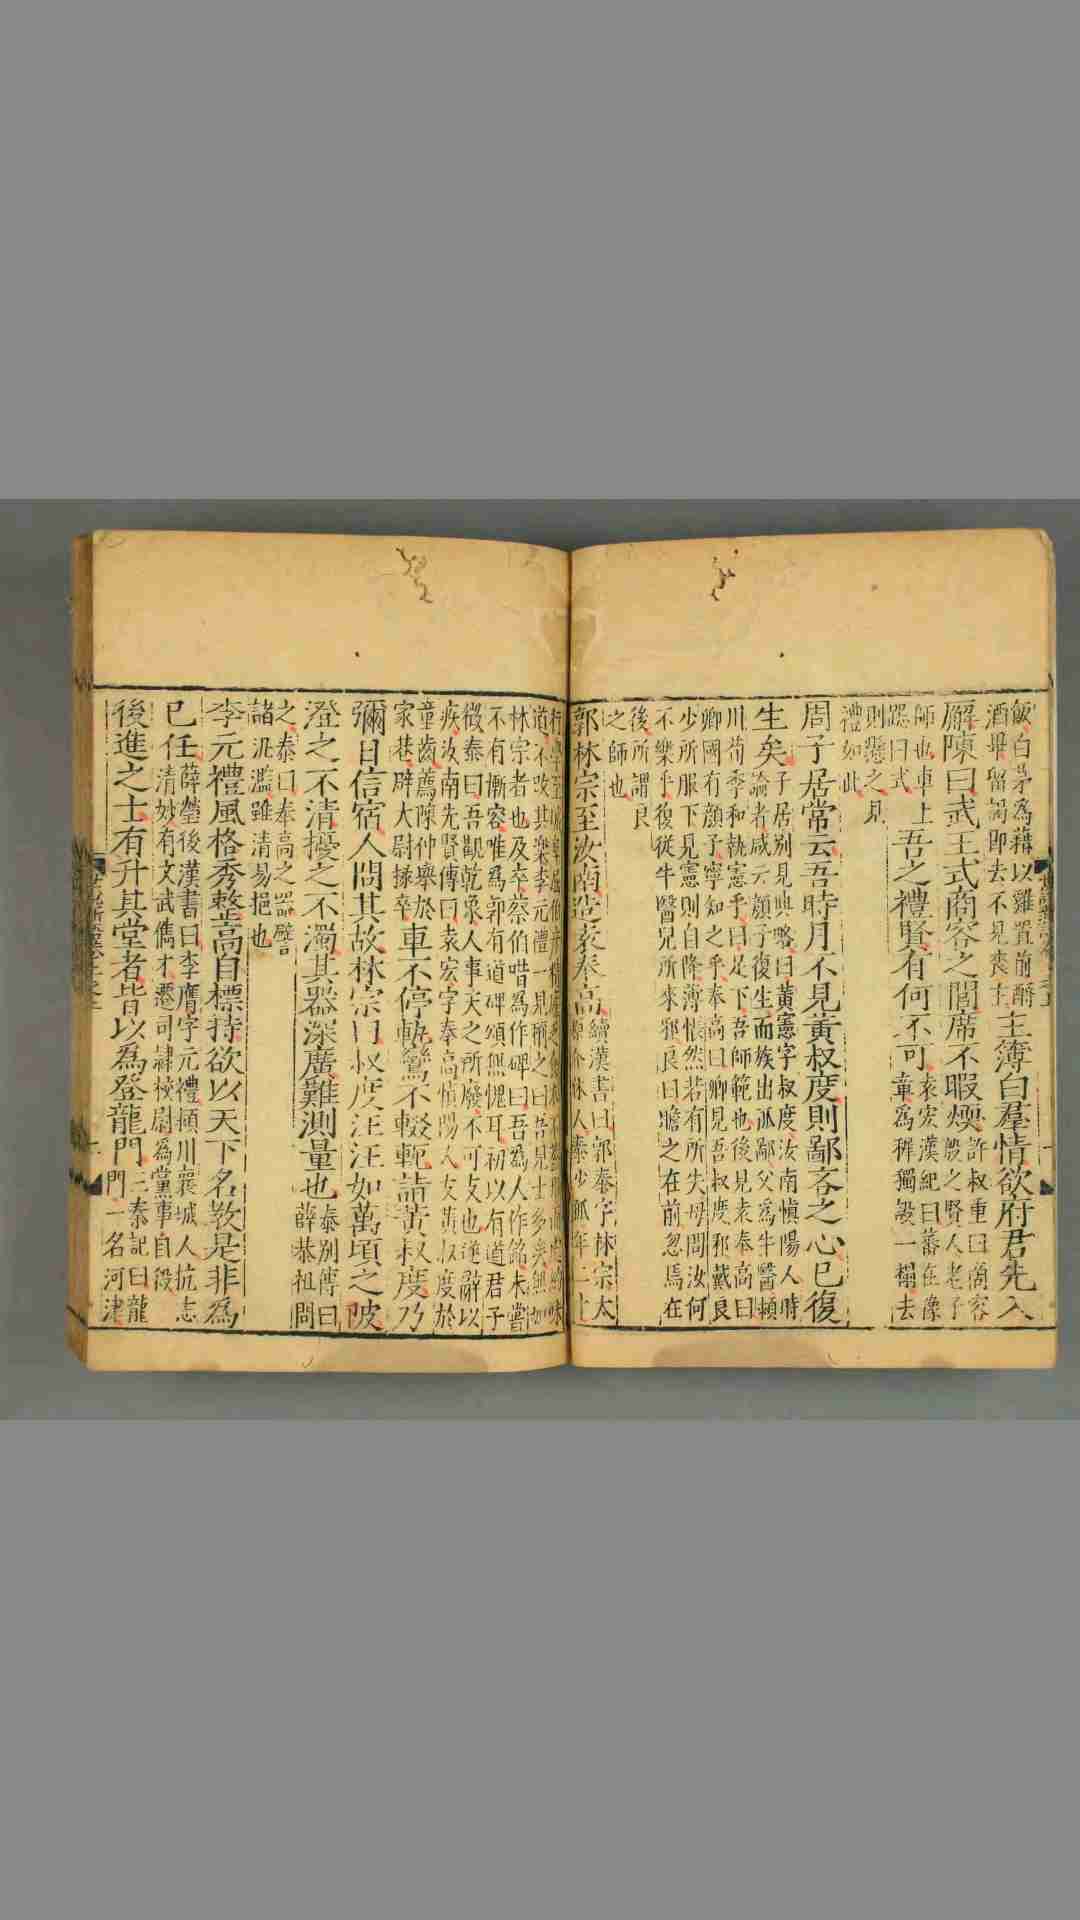 飯白茅爲藉以雞置前酹
酒畢留謁即去不見喪主
主簿白羣情欲府君先入
廨陳曰武王式商容之閭席不暇煗
許叔重曰商容
殷之賢人老子
師也車上
跽曰式
吾之禮賢有何不可
袁宏漢紀曰蕃在豫
章爲穉獨設一榻去
則懸之見
禮如此
周子居常云吾時月不見黃叔度則鄙吝之心已復
生矣
子居別見典略曰黃憲字叔度汝南慎陽人時
論者咸云顏子復生而族出孤鄙父爲牛醫潁
川荀季和執憲手曰足下吾師範也後見袁奉高曰
卿國有顏子寧知之乎奉高曰卿見吾叔度邪戴良
少所服下見憲則自降薄悵然若有所失母問汝何
不樂乎復從牛醫兒所來邪良曰瞻之在前忽焉在
後所謂良
之師也
郭林宗至汝南造袁奉高
續漢書曰郭泰字林宗太
原介休人泰少孤年二十
行學至城阜屈伯
道不改其樂李元禮一見稱之曰吾見士多矣無如
林宗者也及卒蔡伯喈為作碑曰吾為人作銘未嘗
不有慚容唯為郭有道碑頌無愧耳初以有道君子
徵泰曰吾觀乾象人事天之所廢不可支也遂辭以
疾汝南先賢傳曰袁宏字奉高慎陽人友黃叔度於
童齒薦陳仲舉於
家巷辟大尉掾卒
車不停軌鸞不輟軛詣黃叔度乃
彌日信宿人問其故林宗曰叔度汪汪如萬頃之陂
澄之不清擾之不濁其器深廣難測量也
泰別傳曰
薛恭祖問
之泰曰奉高之器譬
諸汎濫雖清易挹也
李元禮風格秀整高自標持欲以天下名教是非爲
己任
薛瑩後漢書曰李膺字元禮潁川襄城人抗志
清妙有文武儁才遷司隸校尉爲黨事自殺
後進之士有升其堂者皆以爲登龍門
三秦記曰龍
門一名河津